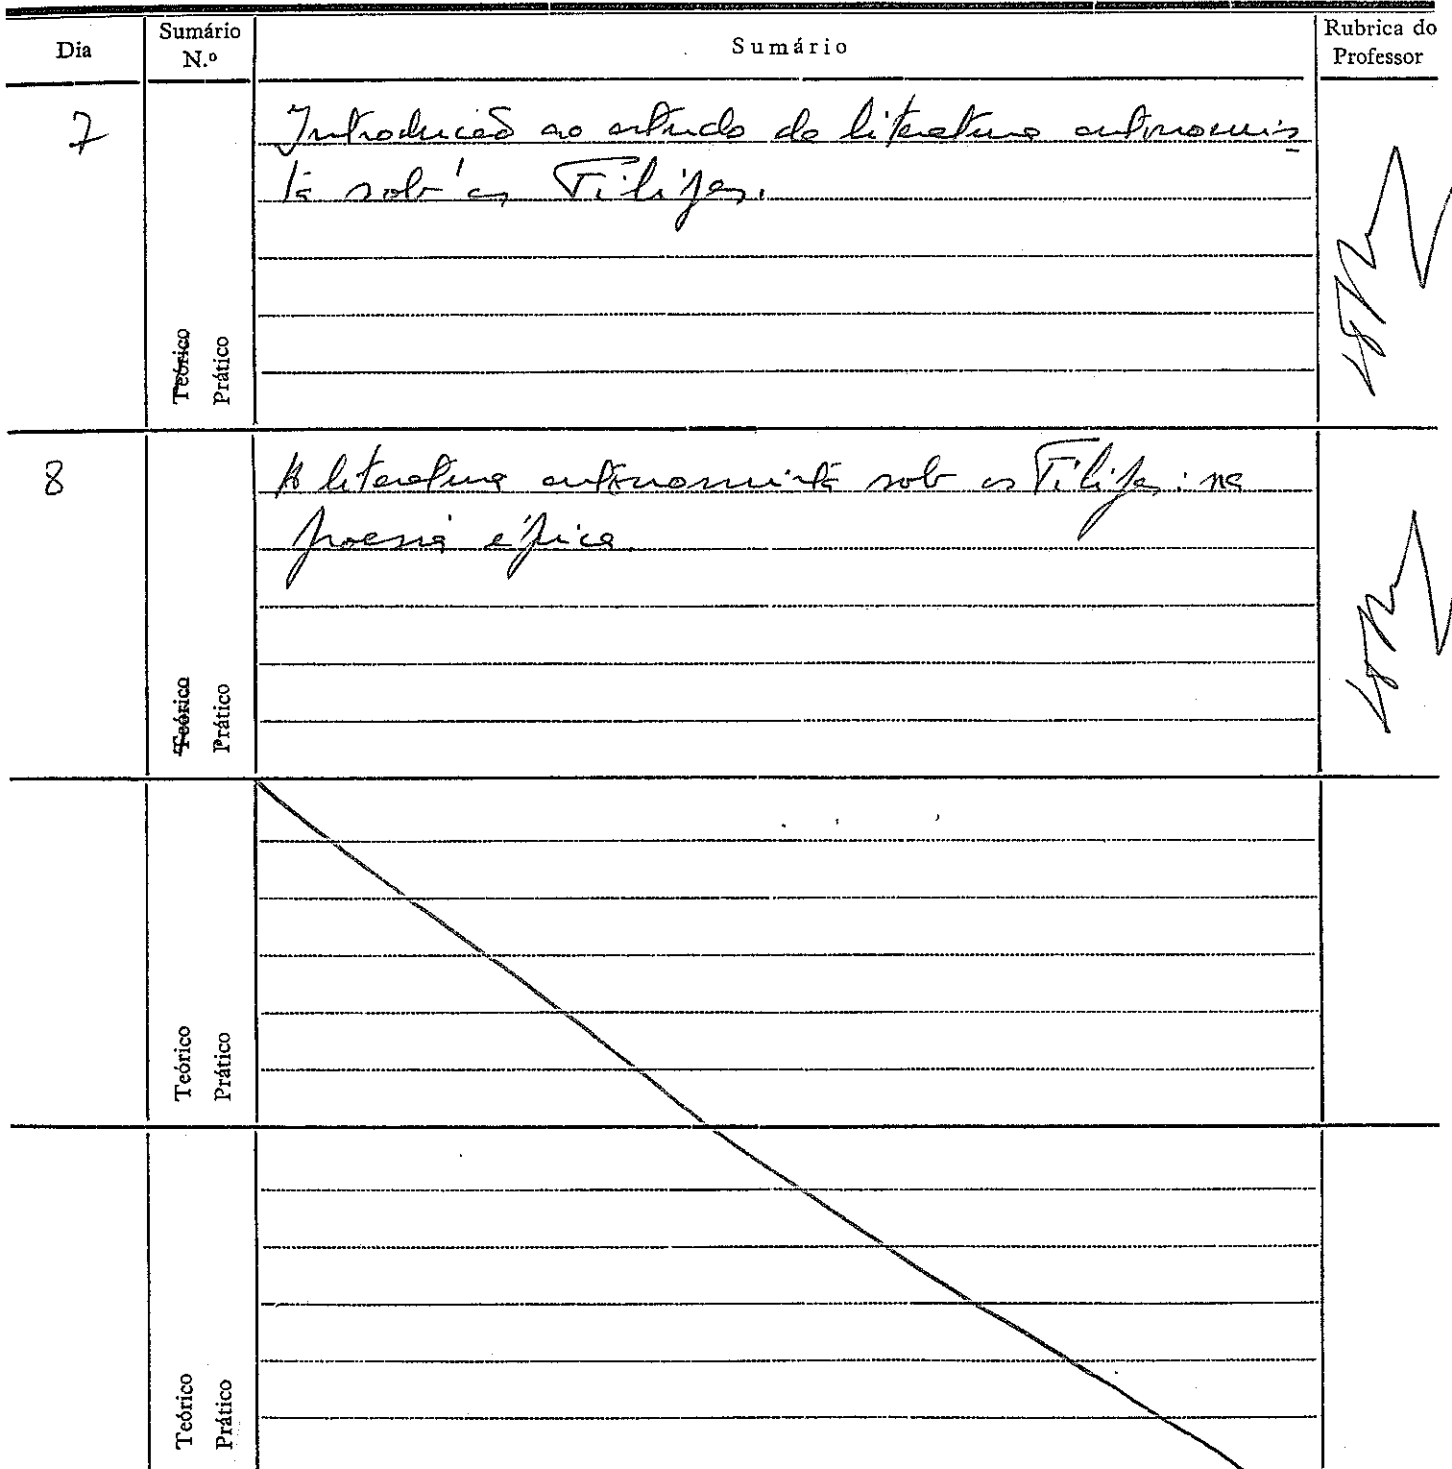 Dia
Sumário
N.º
Sumário
Rubrica do
Professor
7
Introdução ao estudo da literatura autonomis
ta sob os Filipes.
Teórico
Prático
8
A literatura autonomista sob os Filipes: na
poesia épica
Teórico
Prático
Teórico
Prático
Teórico
Prático